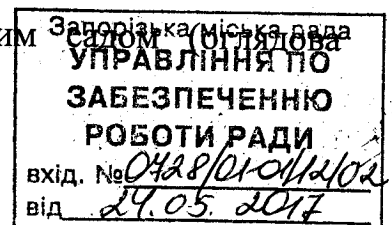 им садом (оглядова
Запорізька міська рада
УПРАВЛІННЯ ПО
ЗАБЕЗПЕЧЕННЮ
РОБОТИ РАДИ
вхід. № 0728/01-01/12/02
від 24.05. 2017